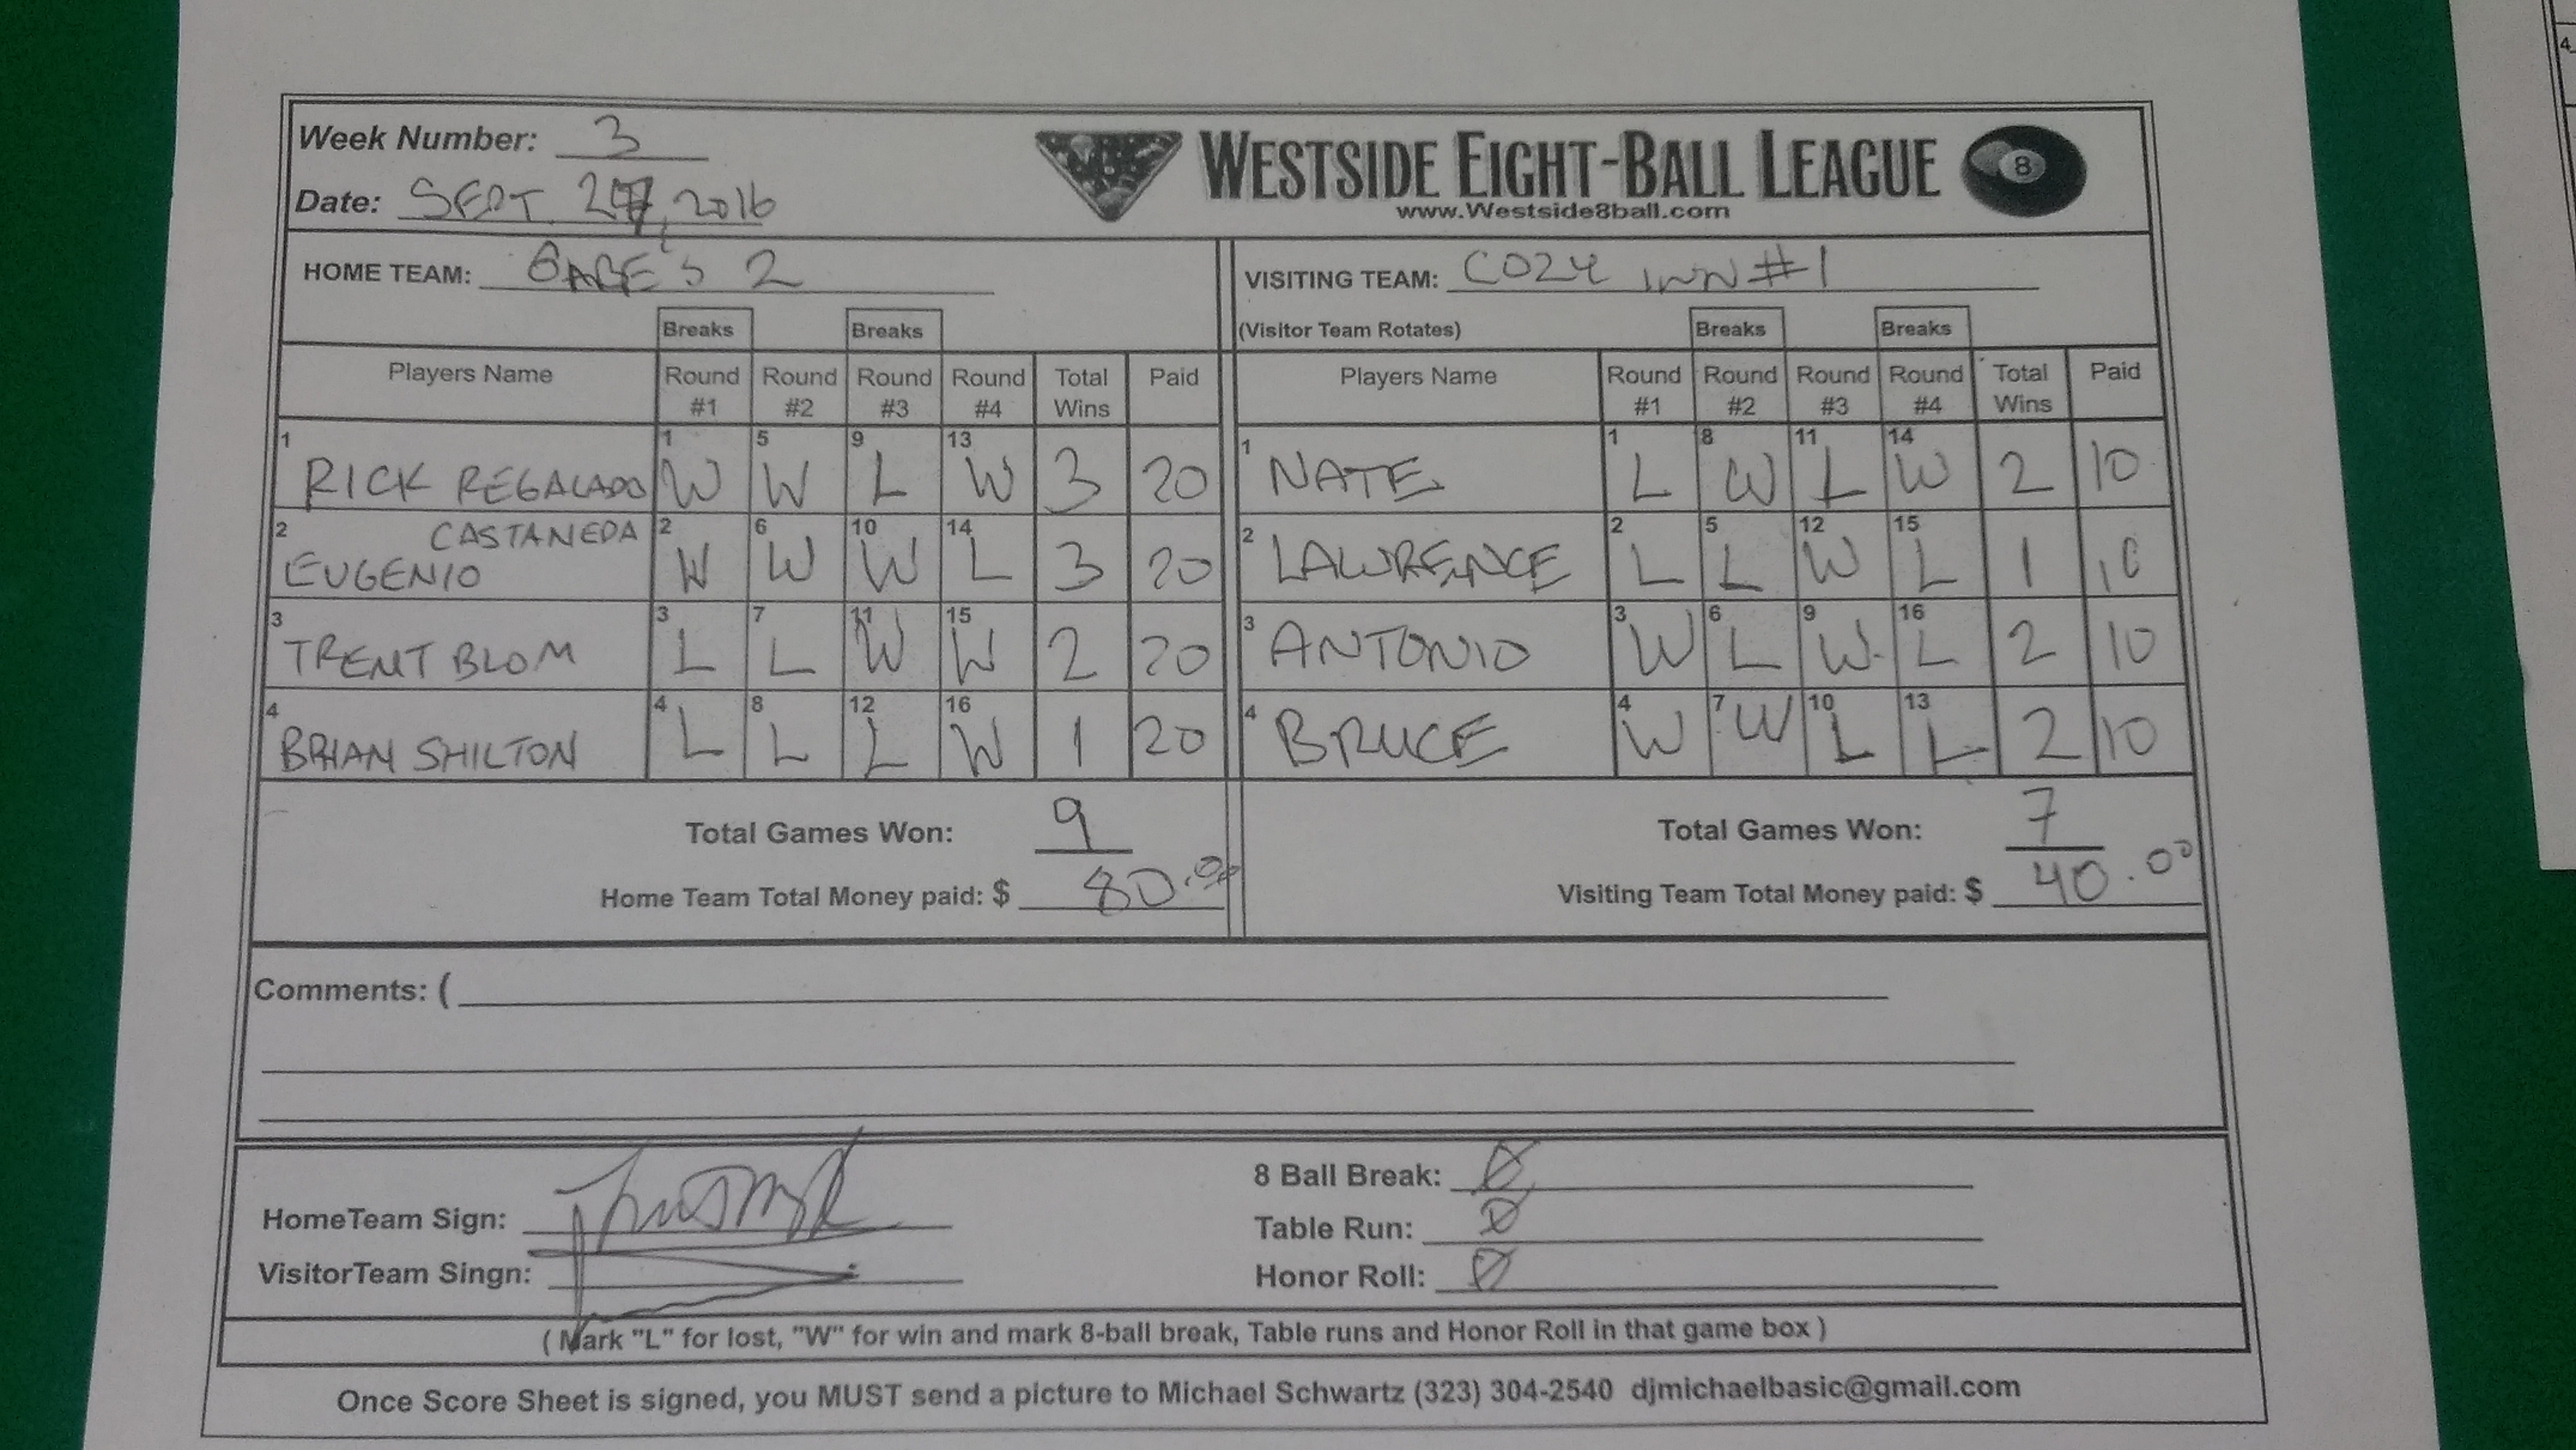 Week Number: 3
Date: SEPT. 27, 2016
WESTSIDE EIGHT-BALL LEAGUE 8
www.Westside8ball.com
HOME TEAM: GABE'S 2
VISITING TEAM: COZY INN #1
Breaks Breaks
(Visitor Team Rotates) Breaks Breaks
Players Name Round #1 Round #2 Round #3 Round #4 Total Wins Paid
1 RICK REGALADO 1 W 5 W 9 L 13 W 3 20
2 EUGENIO CASTANEDA 2 W 6 W 10 W 14 L 3 20
3 TRENT BLOM 3 L 7 L 11 W 15 W 2 20
4 BRIAN SHILTON 4 L 8 L 12 L 16 W 1 20
Total Games Won: 9
Home Team Total Money paid: $ 80.00
Players Name Round #1 Round #2 Round #3 Round #4 Total Wins Paid
1 NATE 1 L 8 W 11 L 14 W 2 10
2 LAWRENCE 2 L 5 L 12 W 15 L 1 10
3 ANTONIO 3 W 6 L 9 W 16 L 2 10
4 BRUCE 4 W 7 W 10 L 13 L 2 10
Total Games Won: 7
Visiting Team Total Money paid: $ 40.00
Comments: (
HomeTeam Sign:
VisitorTeam Singn:
8 Ball Break: Ø
Table Run: Ø
Honor Roll: Ø
( Mark "L" for lost, "W" for win and mark 8-ball break, Table runs and Honor Roll in that game box )
Once Score Sheet is signed, you MUST send a picture to Michael Schwartz (323) 304-2540 djmichaelbasic@gmail.com
4